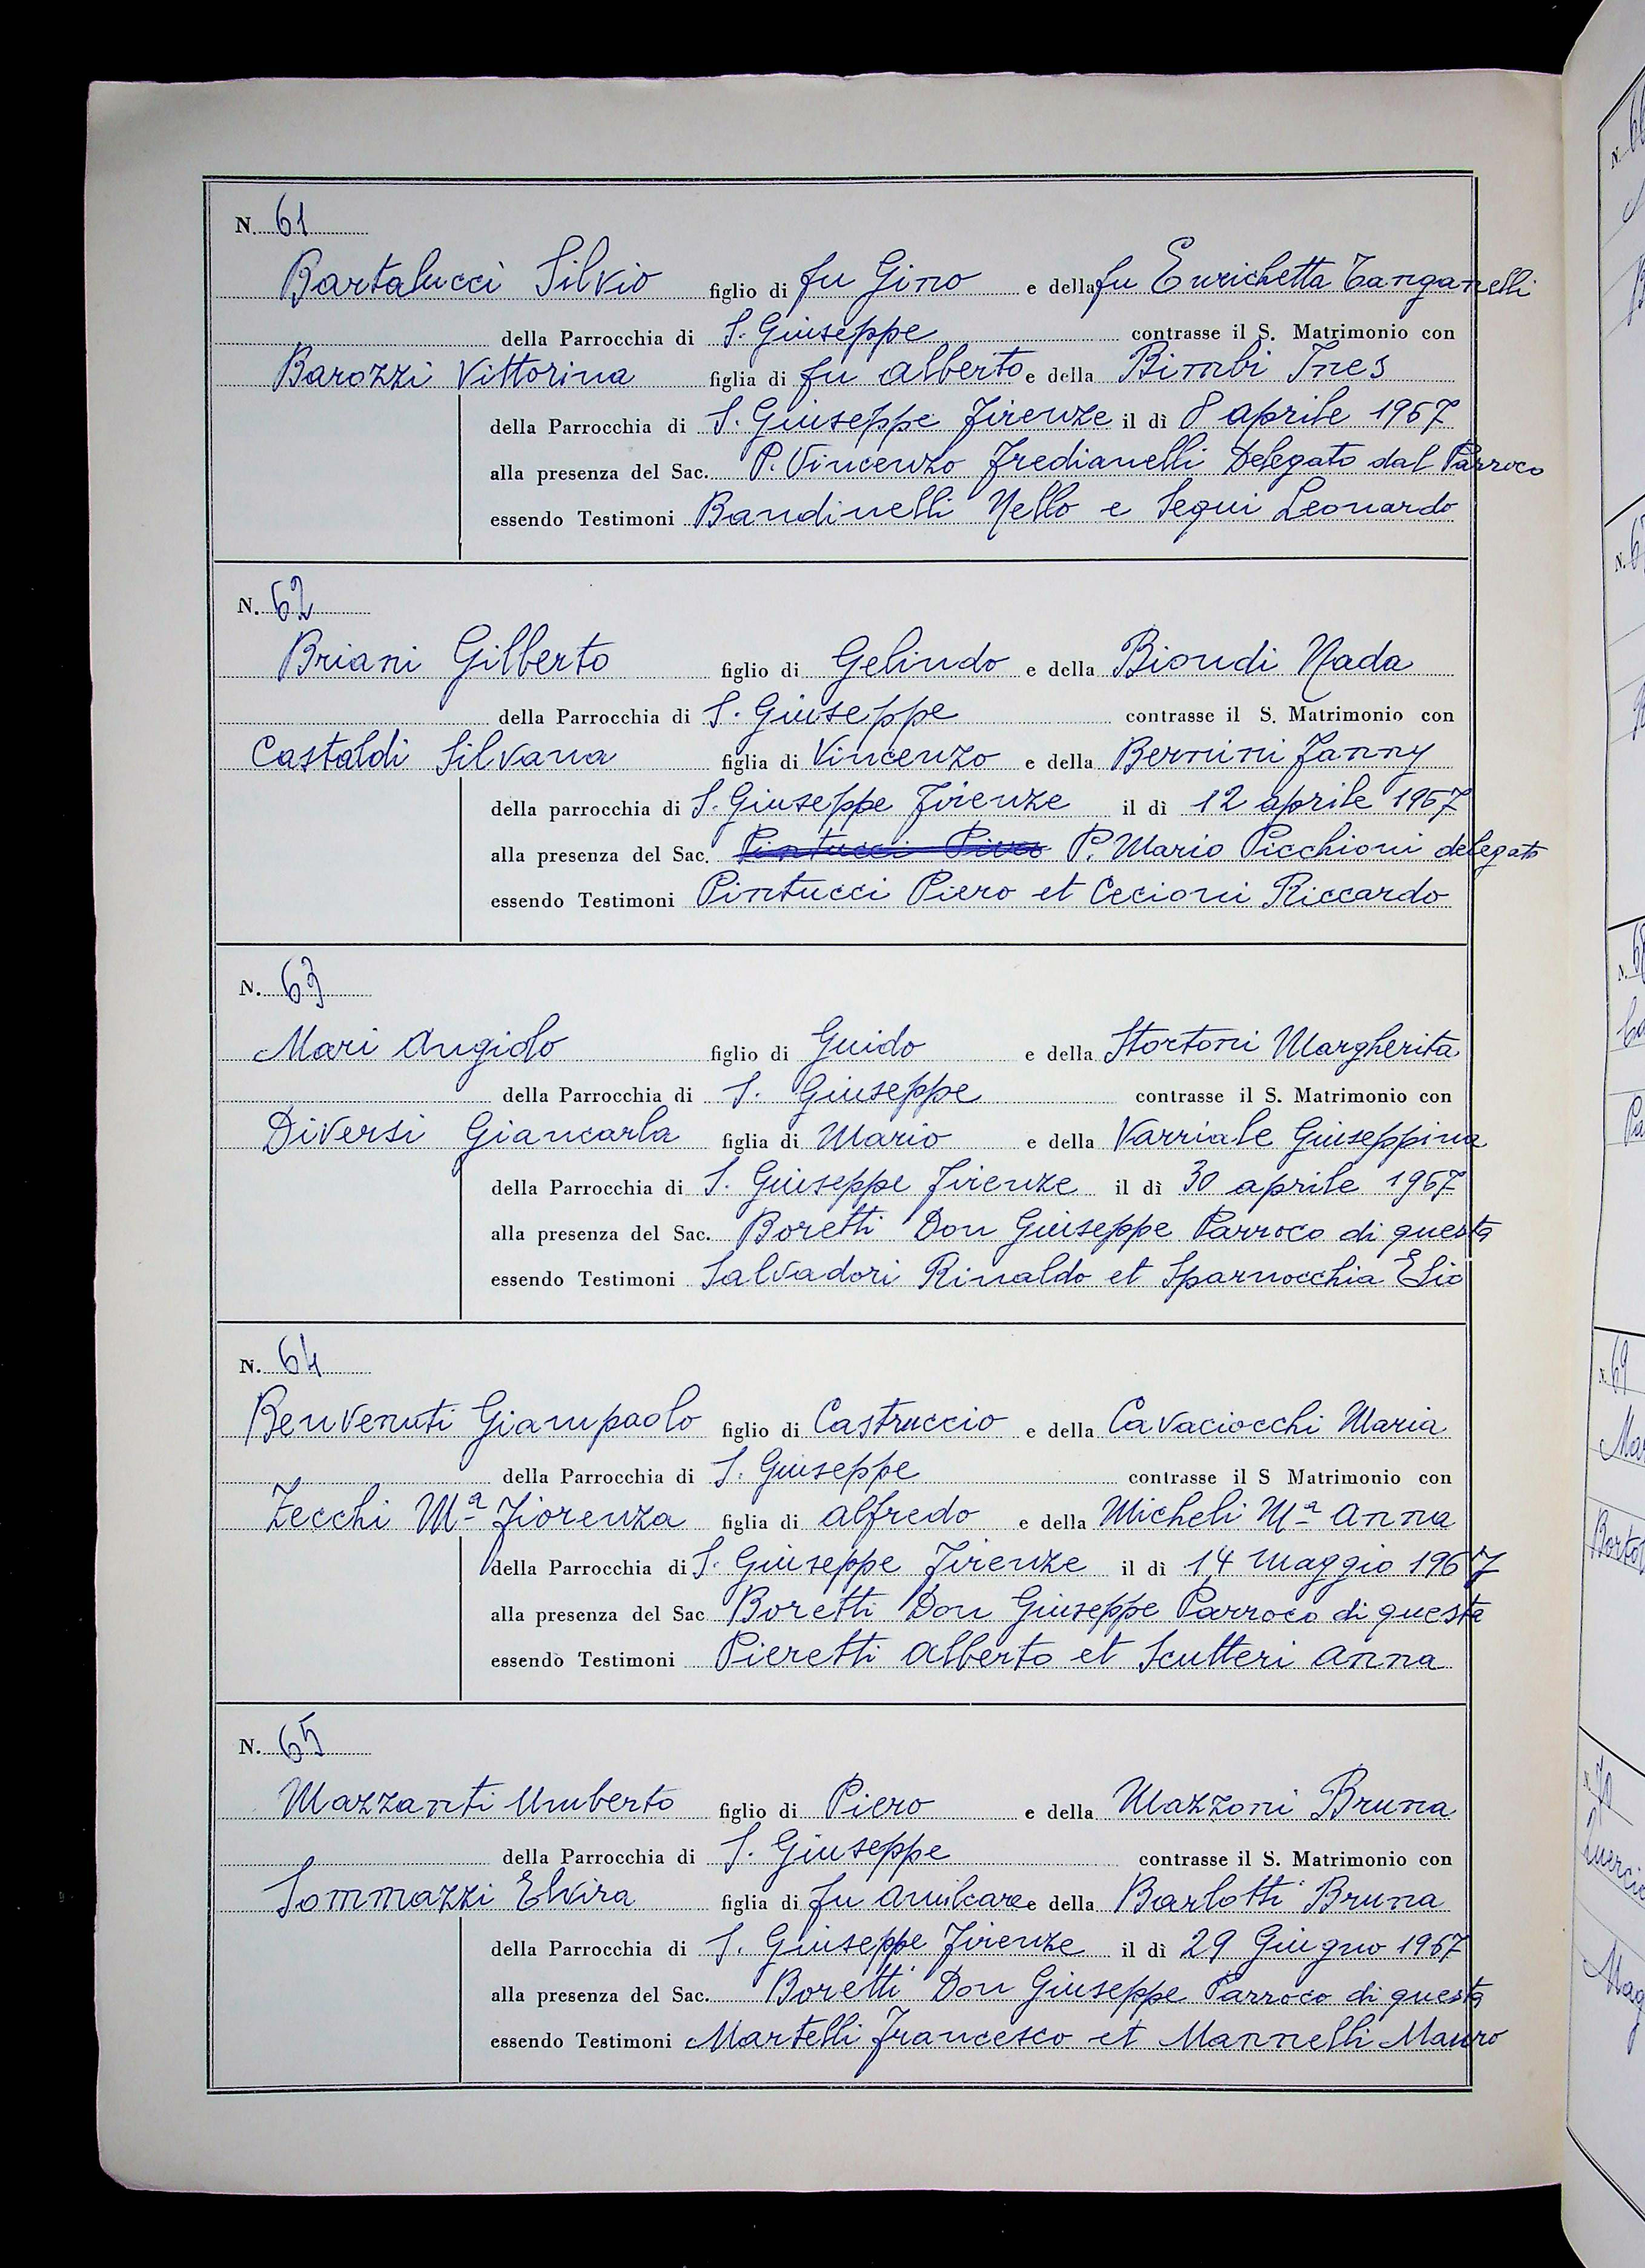 N. 61
Bartalucci Silvio figlio di fu Gino e della fu Enrichetta Tanganelli
della Parrocchia di S. Giuseppe contrasse il S. Matrimonio con
Barozzi Vittorina figlia di fu Alberto e della Bimbi Ines
della Parrocchia di S. Giuseppe Firenze il dì 8 aprile 1967
alla presenza del Sac. P. Vincenzo Fredianelli Delegato dal Parroco
essendo Testimoni Bandinelli Nello e Segui Leonardo
N. 62
Briani Gilberto figlio di Gelindo e della Biondi Nada
della Parrocchia di S. Giuseppe contrasse il S. Matrimonio con
Castaldi Silvana figlia di Vincenzo e della Bernini Fanny
della parrocchia di S. Giuseppe Firenze il dì 12 aprile 1967
alla presenza del Sac. Pintucci Piero P. Mario Picchioni delegato
essendo Testimoni Pintucci Piero et Cecioni Riccardo
N. 63
Mari Angiolo figlio di Guido e della Stortoni Margherita
della Parrocchia di S. Giuseppe contrasse il S. Matrimonio con
Diversi Giancarla figlia di Mario e della Varriale Giuseppina
della Parrocchia di S. Giuseppe Firenze il dì 30 aprile 1967
alla presenza del Sac. Boretti Don Giuseppe Parroco di questa
essendo Testimoni Salvadori Rinaldo et Sparnocchia Elio
N. 64
Benvenuti Giampaolo figlio di Castruccio e della Cavaciocchi Maria
della Parrocchia di S. Giuseppe contrasse il S Matrimonio con
Zecchi Mª Fiorenza figlia di Alfredo e della Micheli Mª Anna
della Parrocchia di S. Giuseppe Firenze il dì 14 Maggio 1967
alla presenza del Sac Boretti Don Giuseppe Parroco di questa
essendo Testimoni Pieretti Alberto et Scutteri Anna
N. 65
Mazzanti Umberto figlio di Piero e della Mazzoni Bruna
della Parrocchia di S. Giuseppe contrasse il S. Matrimonio con
Sommazzi Elvira figlia di fu Amilcare e della Barlotti Bruna
della Parrocchia di S. Giuseppe Firenze il dì 29 Giugno 1967
alla presenza del Sac. Boretti Don Giuseppe Parroco di questa
essendo Testimoni Martelli Francesco et Mannelli Mauro